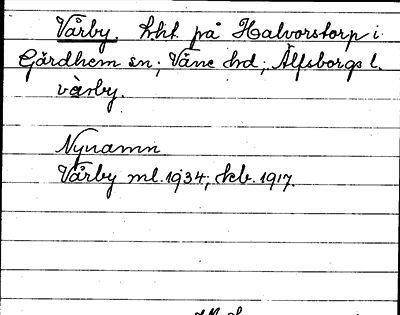 Vårby. lht. på Halvorstorp i
Gärdhem sn; Väne hd; Älfsborgs l.
vàrby.
Nynamn
Vårby ml. 1934; kb. 1917.